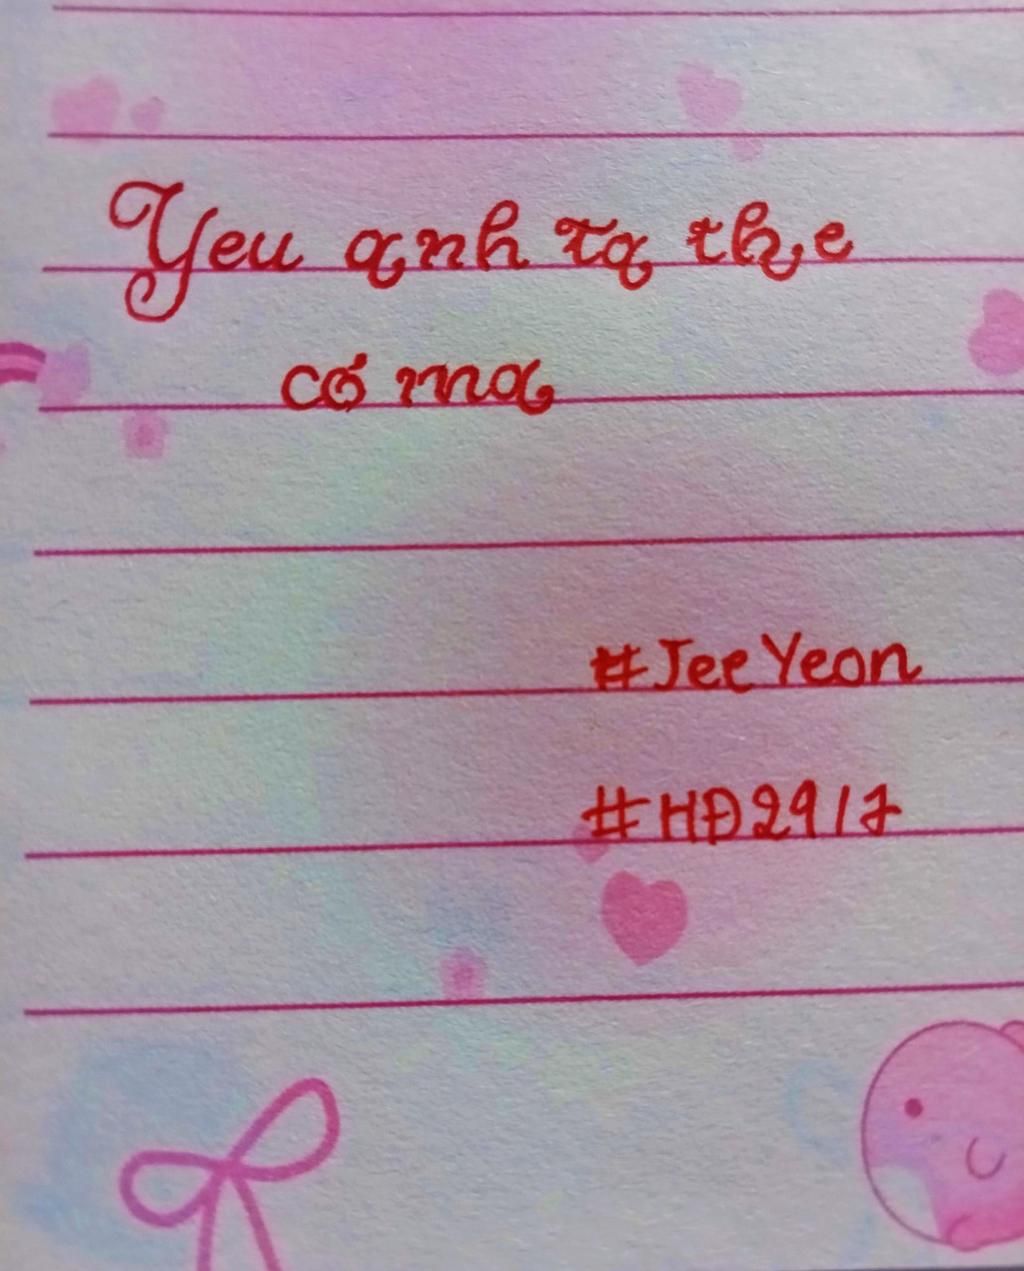 Yeu anh ta the
có ma
#JeeYeon
#HĐ2917